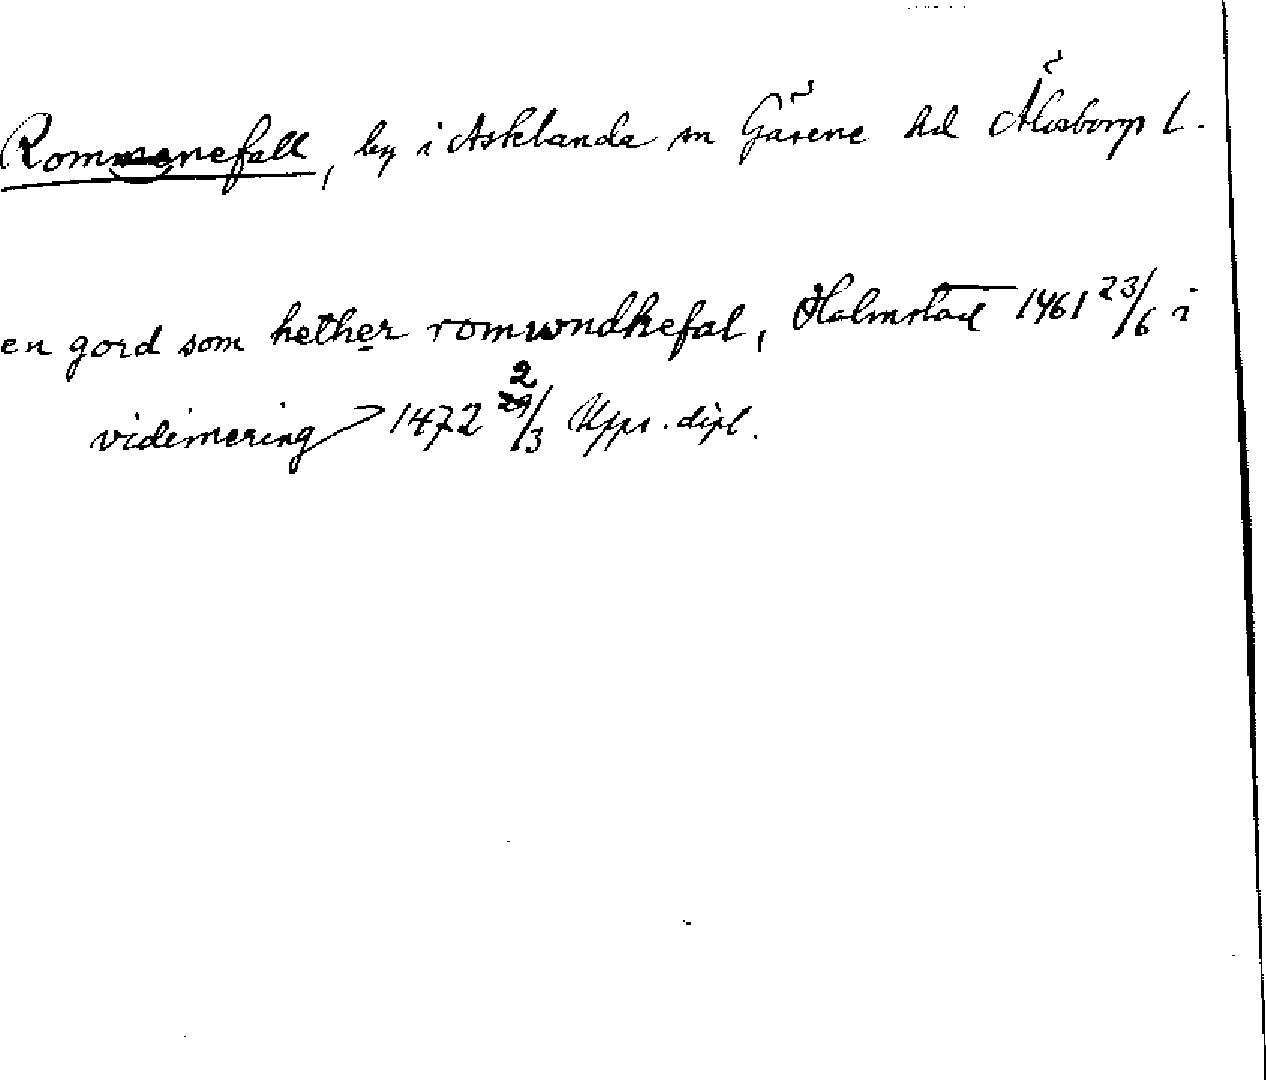 Rommenefall, by i Asklanda sn Gäsene hd Älvsborgs l.
en gord som hether romwndhefal, Halmstad 1461 23/6 i
vidimering 1472 2/3 Upps. dipl.